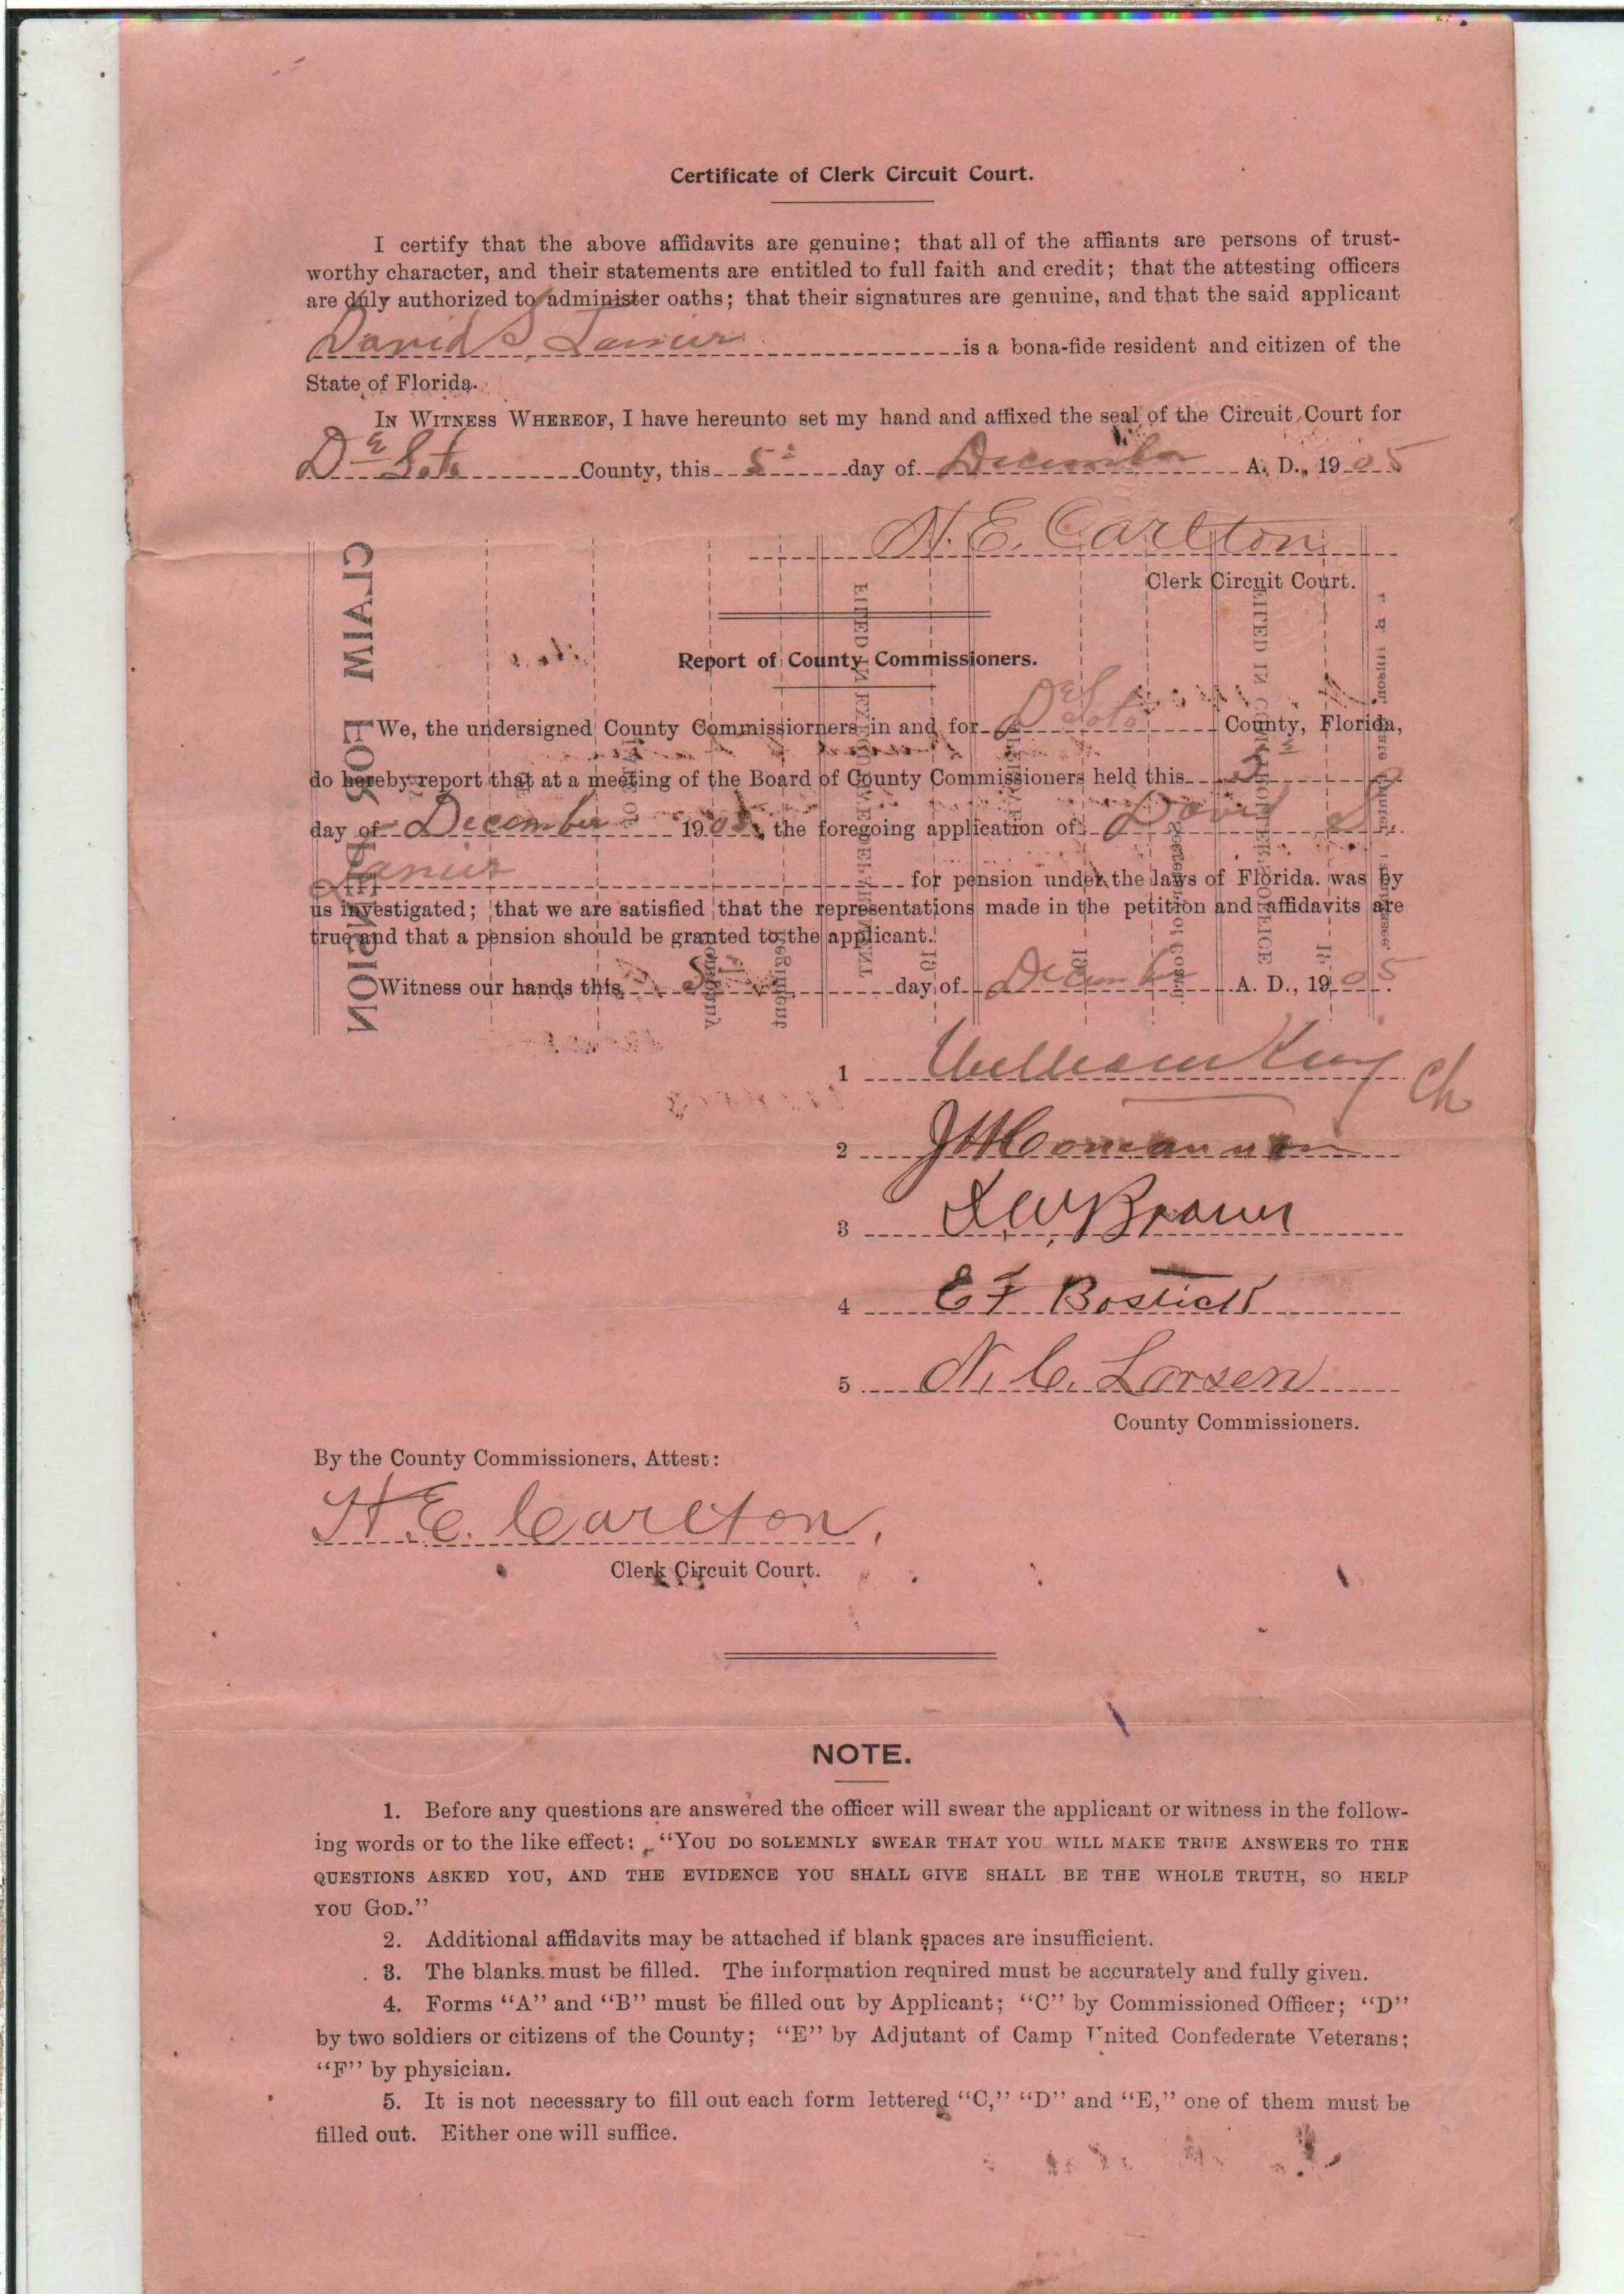 Certificate of Clerk Circuit Court.
I certify that the above affidavits are genuine; that all of the affiants are persons of trust-
worthy character, and their statements are entitled to full faith and credit; that the attesting officers
are duly authorized to administer oaths; that their signatures are genuine, and that the said applicant
David S. Lanier is a bona-fide resident and citizen of the
State of Florida.
IN WITNESS WHEREOF, I have hereunto set my hand and affixed the seal of the Circuit Court for
De Soto County, this 5" day of December A. D., 1905
H. E. Carlton
Clerk Circuit Court.
Report of County Commissioners.
We, the undersigned County Commissiorners in and for DeSoto County, Florida,
do hereby report that at a meeting of the Board of County Commissioners held this 5
day of December 1905, the foregoing application of David S.
Lanier for pension under the laws of Florida. was by
us investigated; that we are satisfied that the representations made in the petition and affidavits are
true and that a pension should be granted to the applicant.
Witness our hands this 5 day of December A. D., 1905.
1 William King Ch
2
3 Brown
4 E F Bostick
5 N. C. Larsen
County Commissioners.
By the County Commissioners, Attest:
H. E. Carlton,
Clerk Circuit Court.
NOTE.
1. Before any questions are answered the officer will swear the applicant or witness in the follow-
ing words or to the like effect: "YOU DO SOLEMNLY SWEAR THAT YOU WILL MAKE TRUE ANSWERS TO THE
QUESTIONS ASKED YOU, AND THE EVIDENCE YOU SHALL GIVE SHALL BE THE WHOLE TRUTH, SO HELP
YOU GOD."
2. Additional affidavits may be attached if blank spaces are insufficient.
3. The blanks must be filled. The information required must be accurately and fully given.
4. Forms "A" and "B" must be filled out by Applicant; "C" by Commissioned Officer; "D"
by two soldiers or citizens of the County; "E" by Adjutant of Camp United Confederate Veterans;
"F" by physician.
5. It is not necessary to fill out each form lettered "C," "D" and "E," one of them must be
filled out. Either one will suffice.
CLAIM FOR PENSION